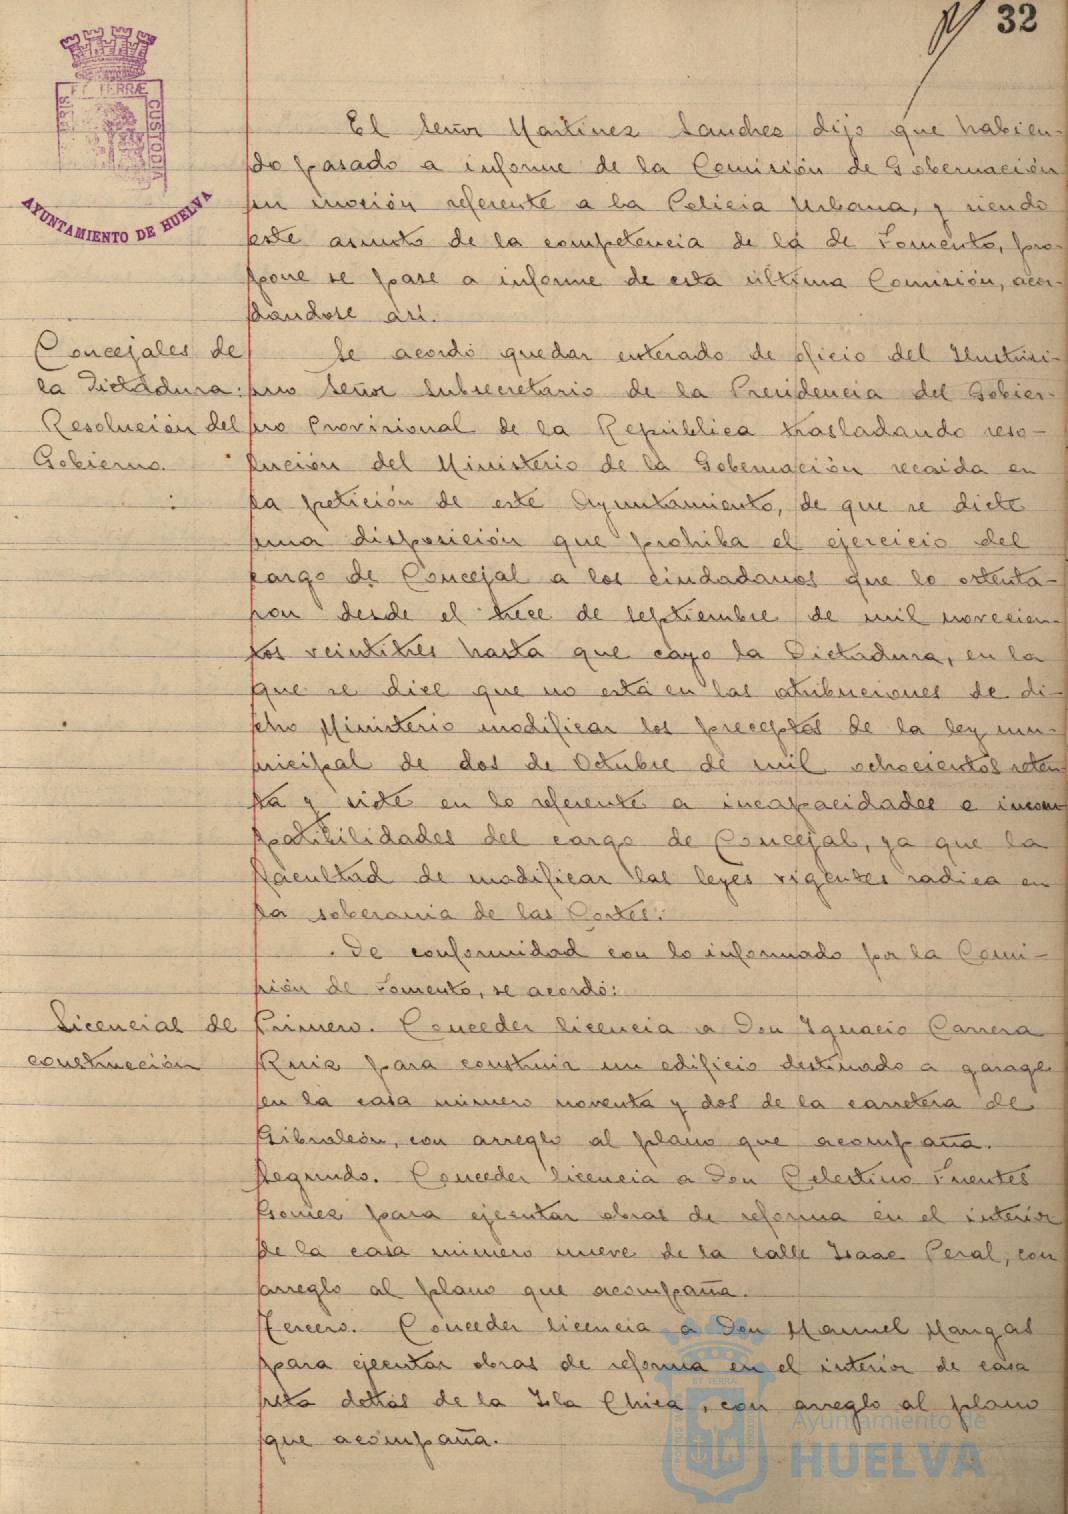 32
ET TERRÆ
CUSTODIA
AYUNTAMIENTO DE HUELVA
El Señor Martinez Sanchez dijo que habien-
do pasado a informe de la Comisión de Gobernación
su moción referente a la Policia Urbana, y siendo
este asunto de la competencia de la de Fomento, pro-
pone se pase a informe de esta última Comisión, acor-
dandose asi.
Concejales de
la Dictadura:
Resolución del
Gobierno.
Se acordó quedar enterado de oficio del Ilustrisi-
mo Señor Subsecretario de la Presidencia del Gobier-
no Provisional de la República trasladando reso-
lución del Ministerio de la Gobernación recaida en
la petición de este Ayuntamiento, de que se dicte
una disposición que prohiba el ejercicio del
cargo de Concejal a los ciudadanos que lo ostenta-
ron desde el trece de Septiembre de mil novecien-
tos veintitres hasta que cayo la Dictadura, en la
que se dice que no está en las atribuciones de di-
cho Ministerio modificar los preceptos de la ley mu-
nicipal de dos de Octubre de mil ochocientos seten-
ta y siete en lo referente a incapacidades e incom
patibilidades del cargo de Concejal, ya que la
facultad de modificar las leyes vigentes radica en
la soberania de las Cortes.
De conformidad con lo informado por la Comi-
sión de Fomento, se acordó:
Licencias de
construcción
Primero. Conceder licencia a Don Ignacio Carrera
Ruiz para construir un edificio destinado a garage
en la casa número noventa y dos de la carretera de
Gibraleón, con arreglo al plano que acompaña.
Segundo. Conceder licencia a Don Celestino Fuentes
Gomez para ejecutar obras de reforma en el interior
de la casa número nueve de la calle Isaac Peral, con
arreglo al plano que acompaña.
Tercero. Conceder licencia a Don Manuel Mangas
para ejecutar obras de reforma en el interior de casa
sita detrás de la Isla Chica, con arreglo al plano
que acompaña.
Ayuntamiento de
HUELVA